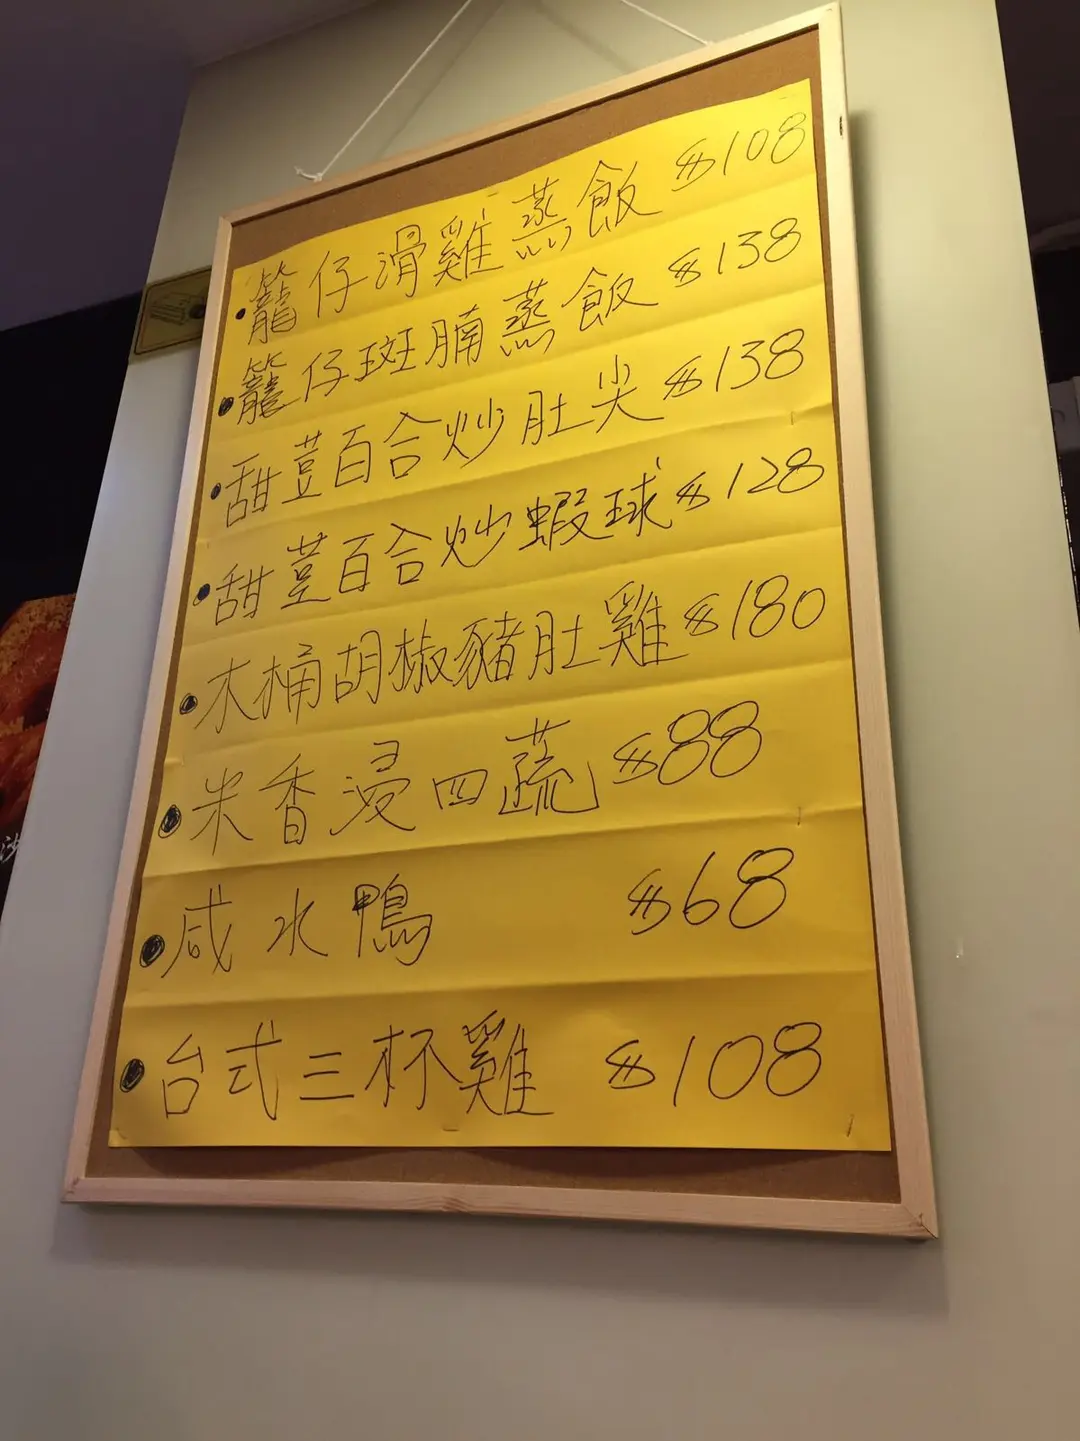 • 籠仔滑雞蒸飯 $108
• 籠仔斑腩蒸飯 $138
• 甜荳百合炒肚尖 $138
• 甜荳百合炒蝦球 $128
• 木桶胡椒豬肚雞 $180
• 米香浸四蔬 $88
• 咸水鴨 $68
• 台式三杯雞 $108